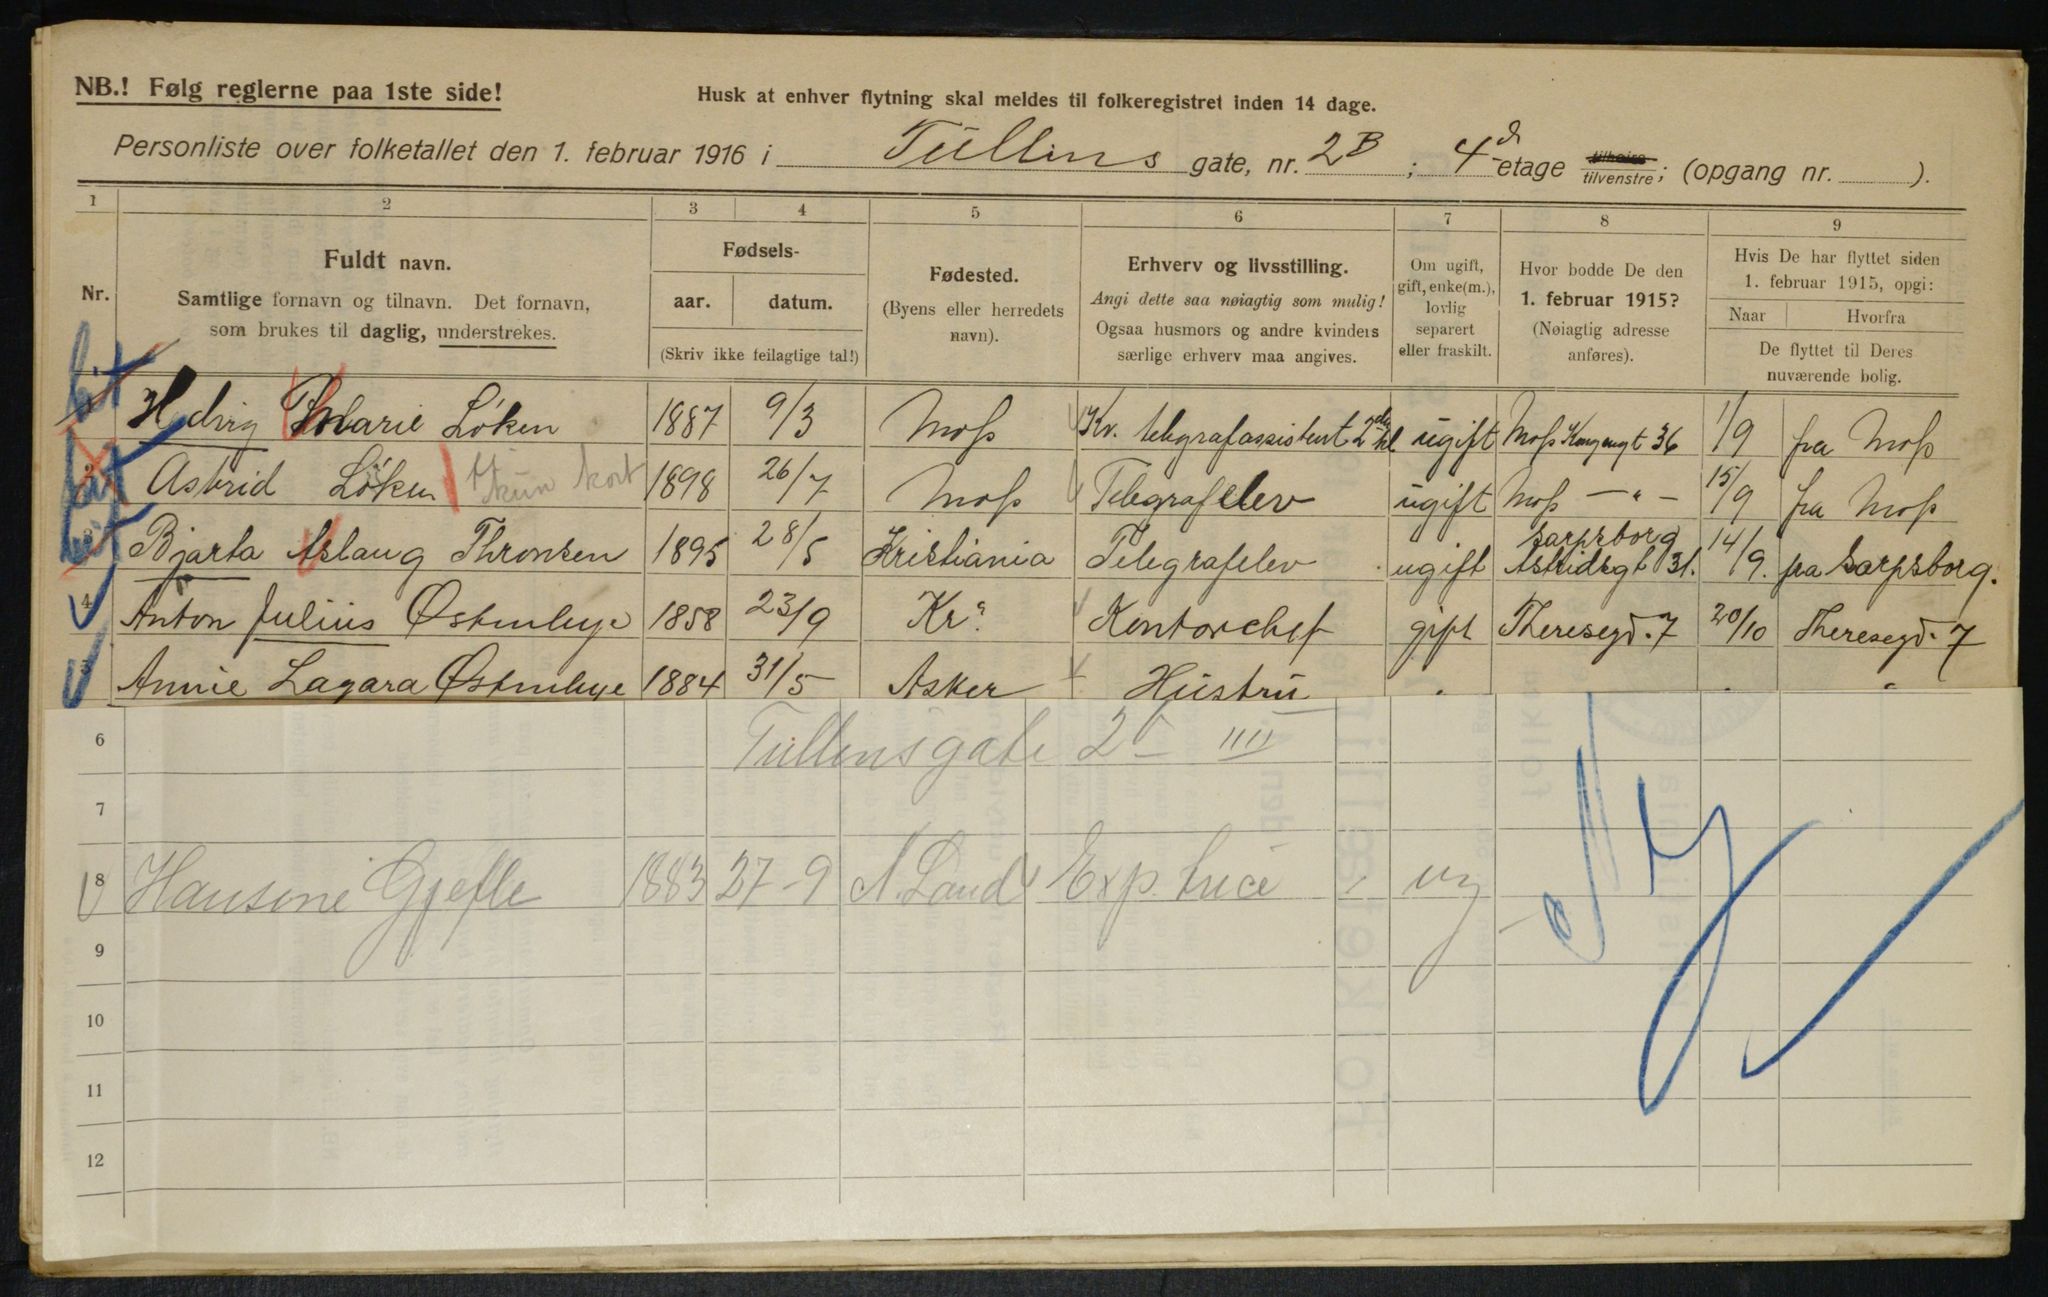 NB.! Følg reglerne paa 1ste side!
Husk at enhver flytning skal meldes til folkeregistret inden 14 dage.
Personliste over folketallet den 1. februar 1916 i Tullins gate, nr. 2B ; 4d etage tilhøire tilvenstre; (opgang nr. ).
1 2 3 4 5 6 7 8 9
Nr.
Fuldt navn.
Samtlige fornavn og tilnavn. Det fornavn,
som brukes til daglig, understrekes.
Fødsels-
aar. datum.
(Skriv ikke feilagtige tal!)
Fødested.
(Byens eller herredets
navn).
Erhverv og livsstilling.
Angi dette saa nøiagtig som mulig!
Ogsaa husmors og andre kvinders
særlige erhverv maa angives.
Om ugift,
gift, enke(m.),
lovlig
separert
eller fraskilt.
Hvor bodde De den
1. februar 1915?
(Nøiagtig adresse
anføres).
Hvis De har flyttet siden
1. februar 1915, opgi:
Naar Hvorfra
De flyttet til Deres
nuværende bolig.
Hedvig Marie Löken 1887 9/3 Moss Kv. telegrafassistent 2den kl ugift Moss Kongensgt 36 1/9 fra Moss
Astrid Löken kun kort 1898 26/7 Moss Telegrafelev ugift Moss — " — 15/9 fra Moss
3 Bjarta Aslaug Thronsen 1895 28/5 Kristiania Telegrafelev ugift Sarpsborg Astridsgt 31. 14/9. fra Sarpsborg.
4 Anton Julius Østenbye 1858 23/9 Kr.a Kontorchef gift Theresegd. 7 20/10 Theresegd. 7
5 Annie Lagara Østenbye 1884 31/5 Asker Hustru " " "
6 Tullinsgate 2b IIII
7
8 Hansine Gjefle 1883 27-9 N. Land Exp. trice ug
9
10
11
12
Ny